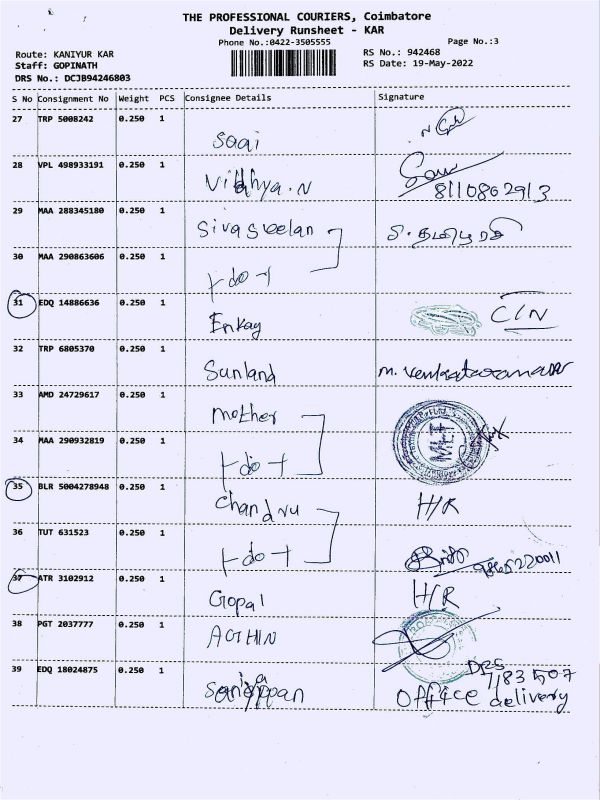 THE PROFESSIONAL COURIERS, Coimbatore
Delivery Runsheet - KAR
Phone No.:0422-3505555
Page No.:3
Route: KANIYUR KAR
RS No.: 942468
Staff: GOPINATH
RS Date: 19-May-2022
DRS No.: DCJB94246803
S No Consignment No Weight PCS Consignee Details Signature
27 TRP 5008242 0.250 1
Saai
28 VPL 498933191 0.250 1
Vidhya.N
8110862913
29 MAA 288345180 0.250 1
Sivaseelan
30 MAA 290863606 0.250 1
do
31 EDQ 14886636 0.250 1 C/N
Enkay
32 TRP 6805370 0.250 1
Sunland m. Venkataramanan
33 AMD 24729617 0.250 1
mother
MLT
34 MAA 290932819 0.250 1
do
35 BLR 5004278948 0.250 1
chandru H/R
36 TUT 631523 0.250 1
do
37 ATR 3102912 0.250 1
Gopal H/R
38 PGT 2037777 0.250 1
39 EDQ 18024875 0.250 1
DRS
7183507
Office delivery